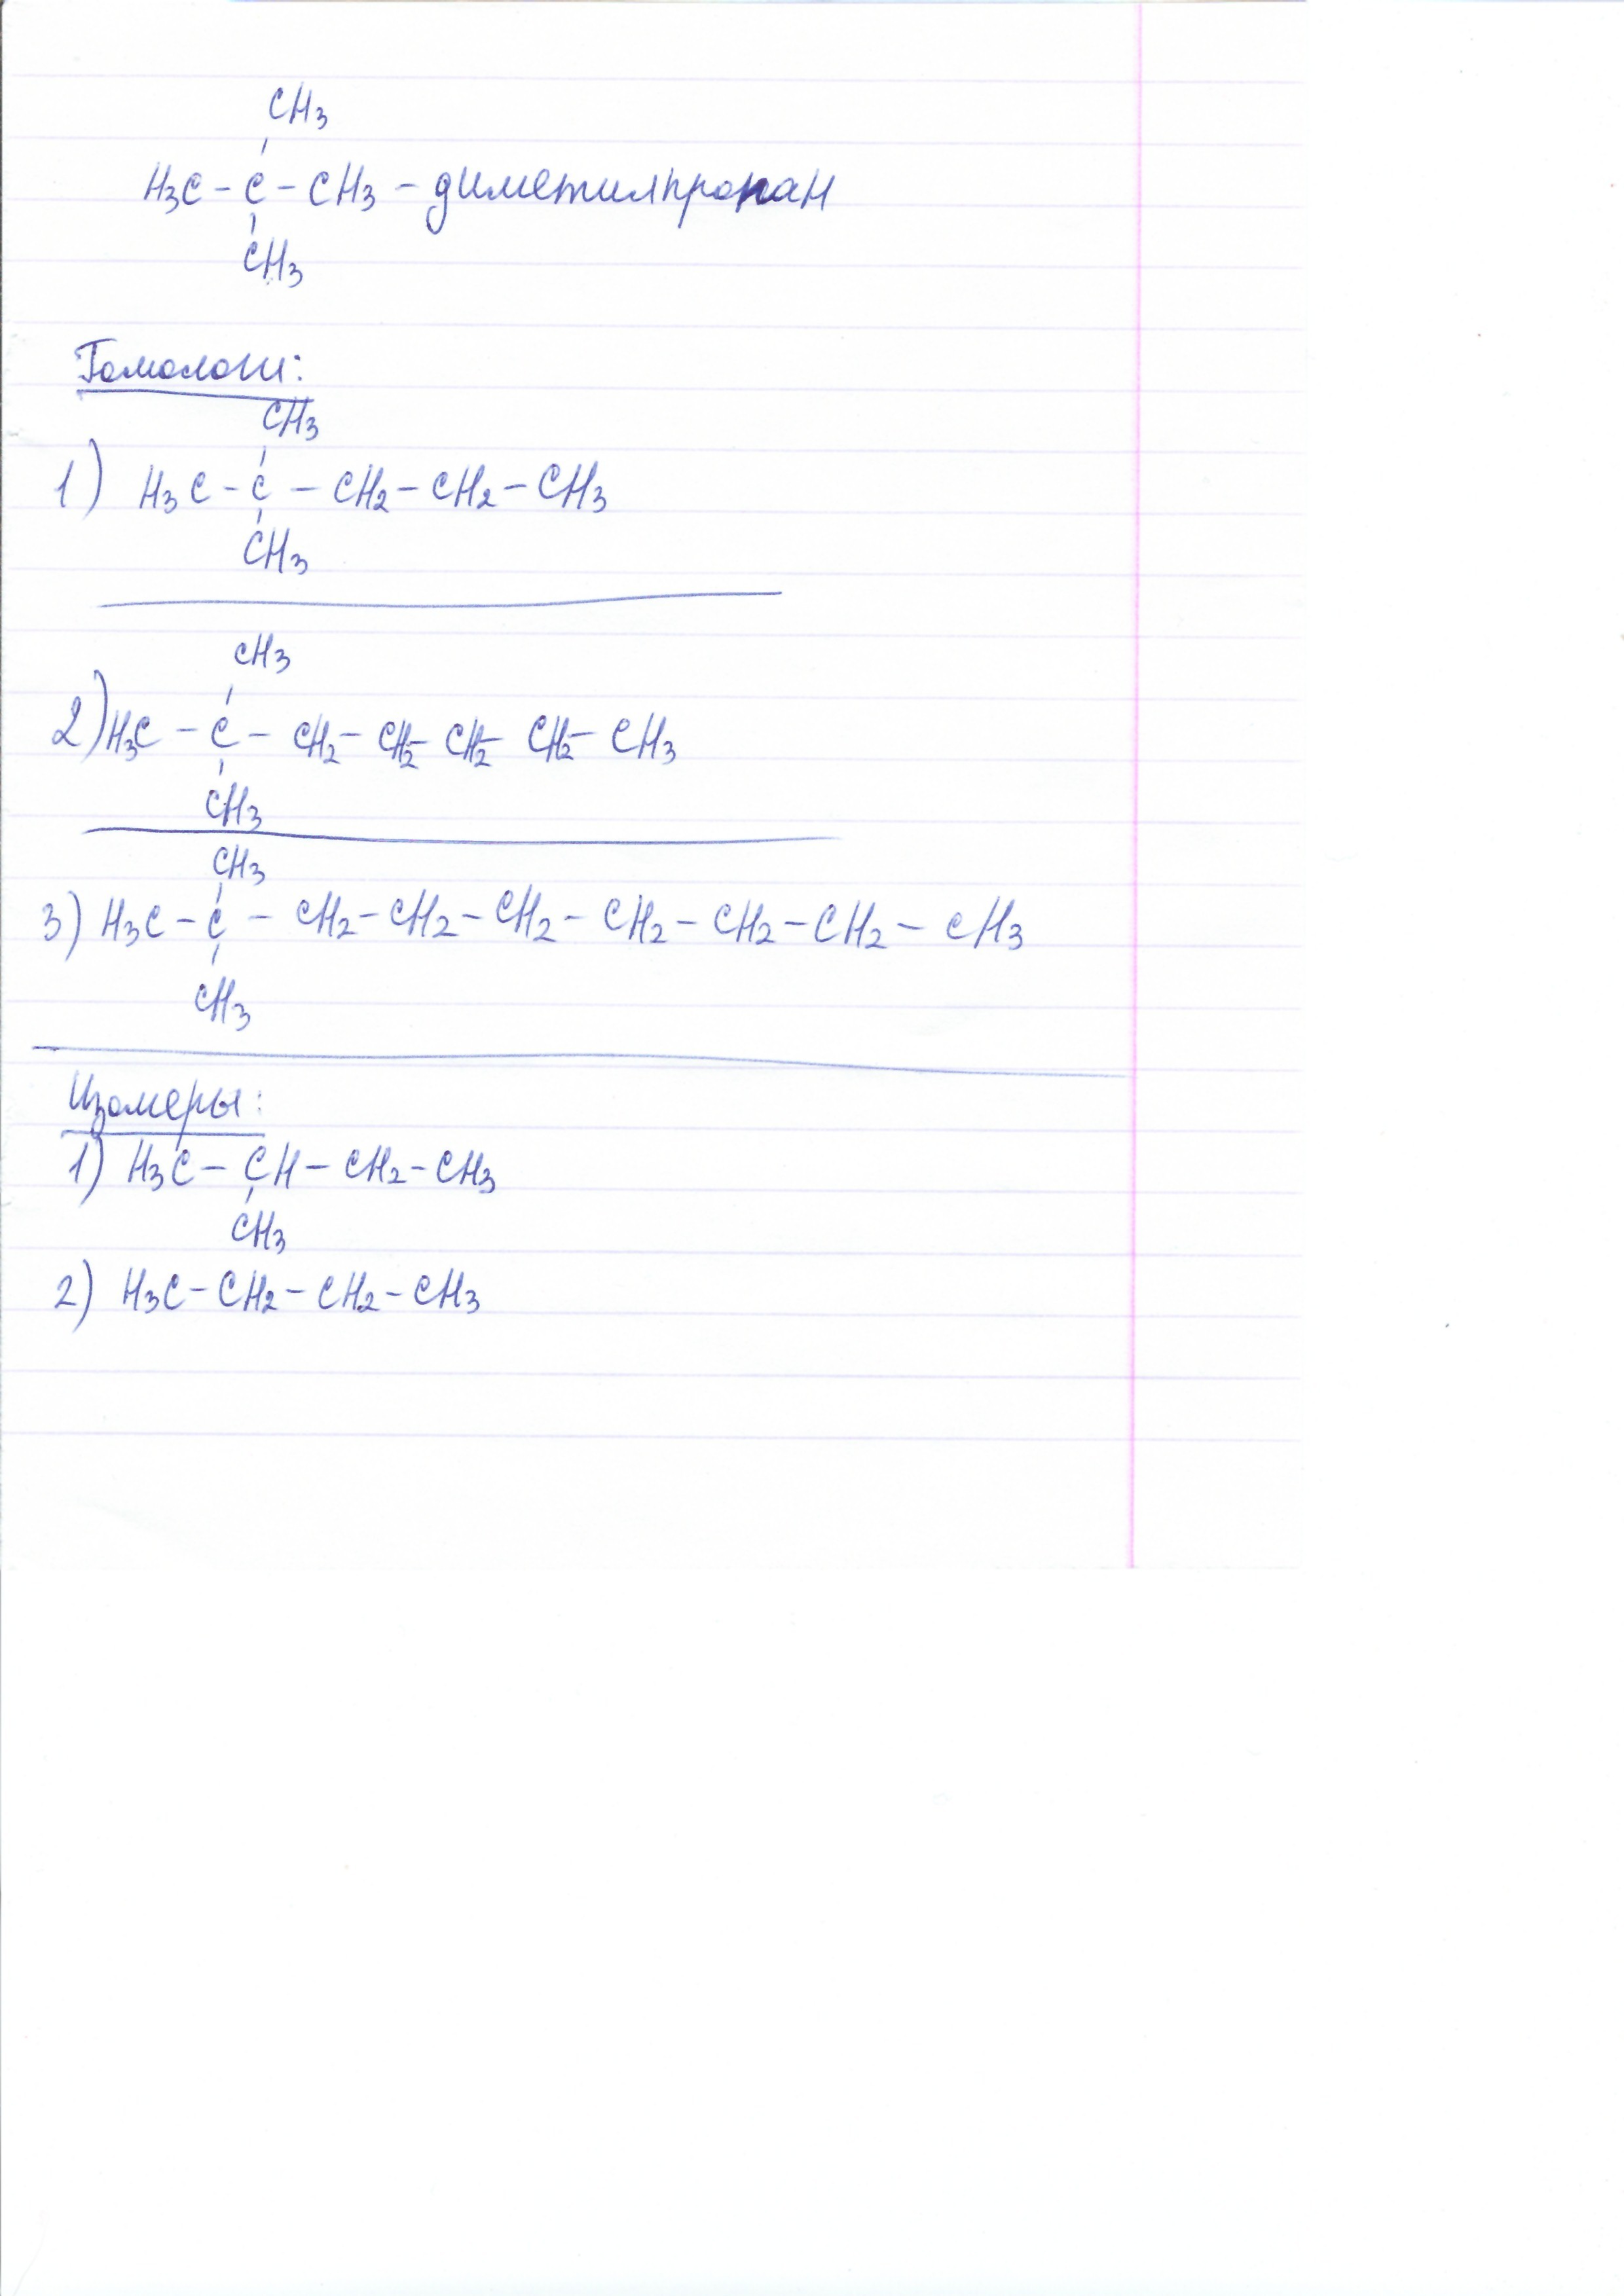 CH₃
H₃C - C - CH₃ - диметилпропан
CH₃
Гомологи:
CH₃
1) H₃C - C - CH₂ - CH₂ - CH₃
CH₃
CH₃
2) H₃C - C - CH₂ - CH₂ - CH₂ - CH₂ - CH₃
CH₃
CH₃
3) H₃C - C - CH₂ - CH₂ - CH₂ - CH₂ - CH₂ - CH₂ - CH₃
CH₃
Изомеры:
1) H₃C - CH - CH₂ - CH₃
CH₃
2) H₃C - CH₂ - CH₂ - CH₃